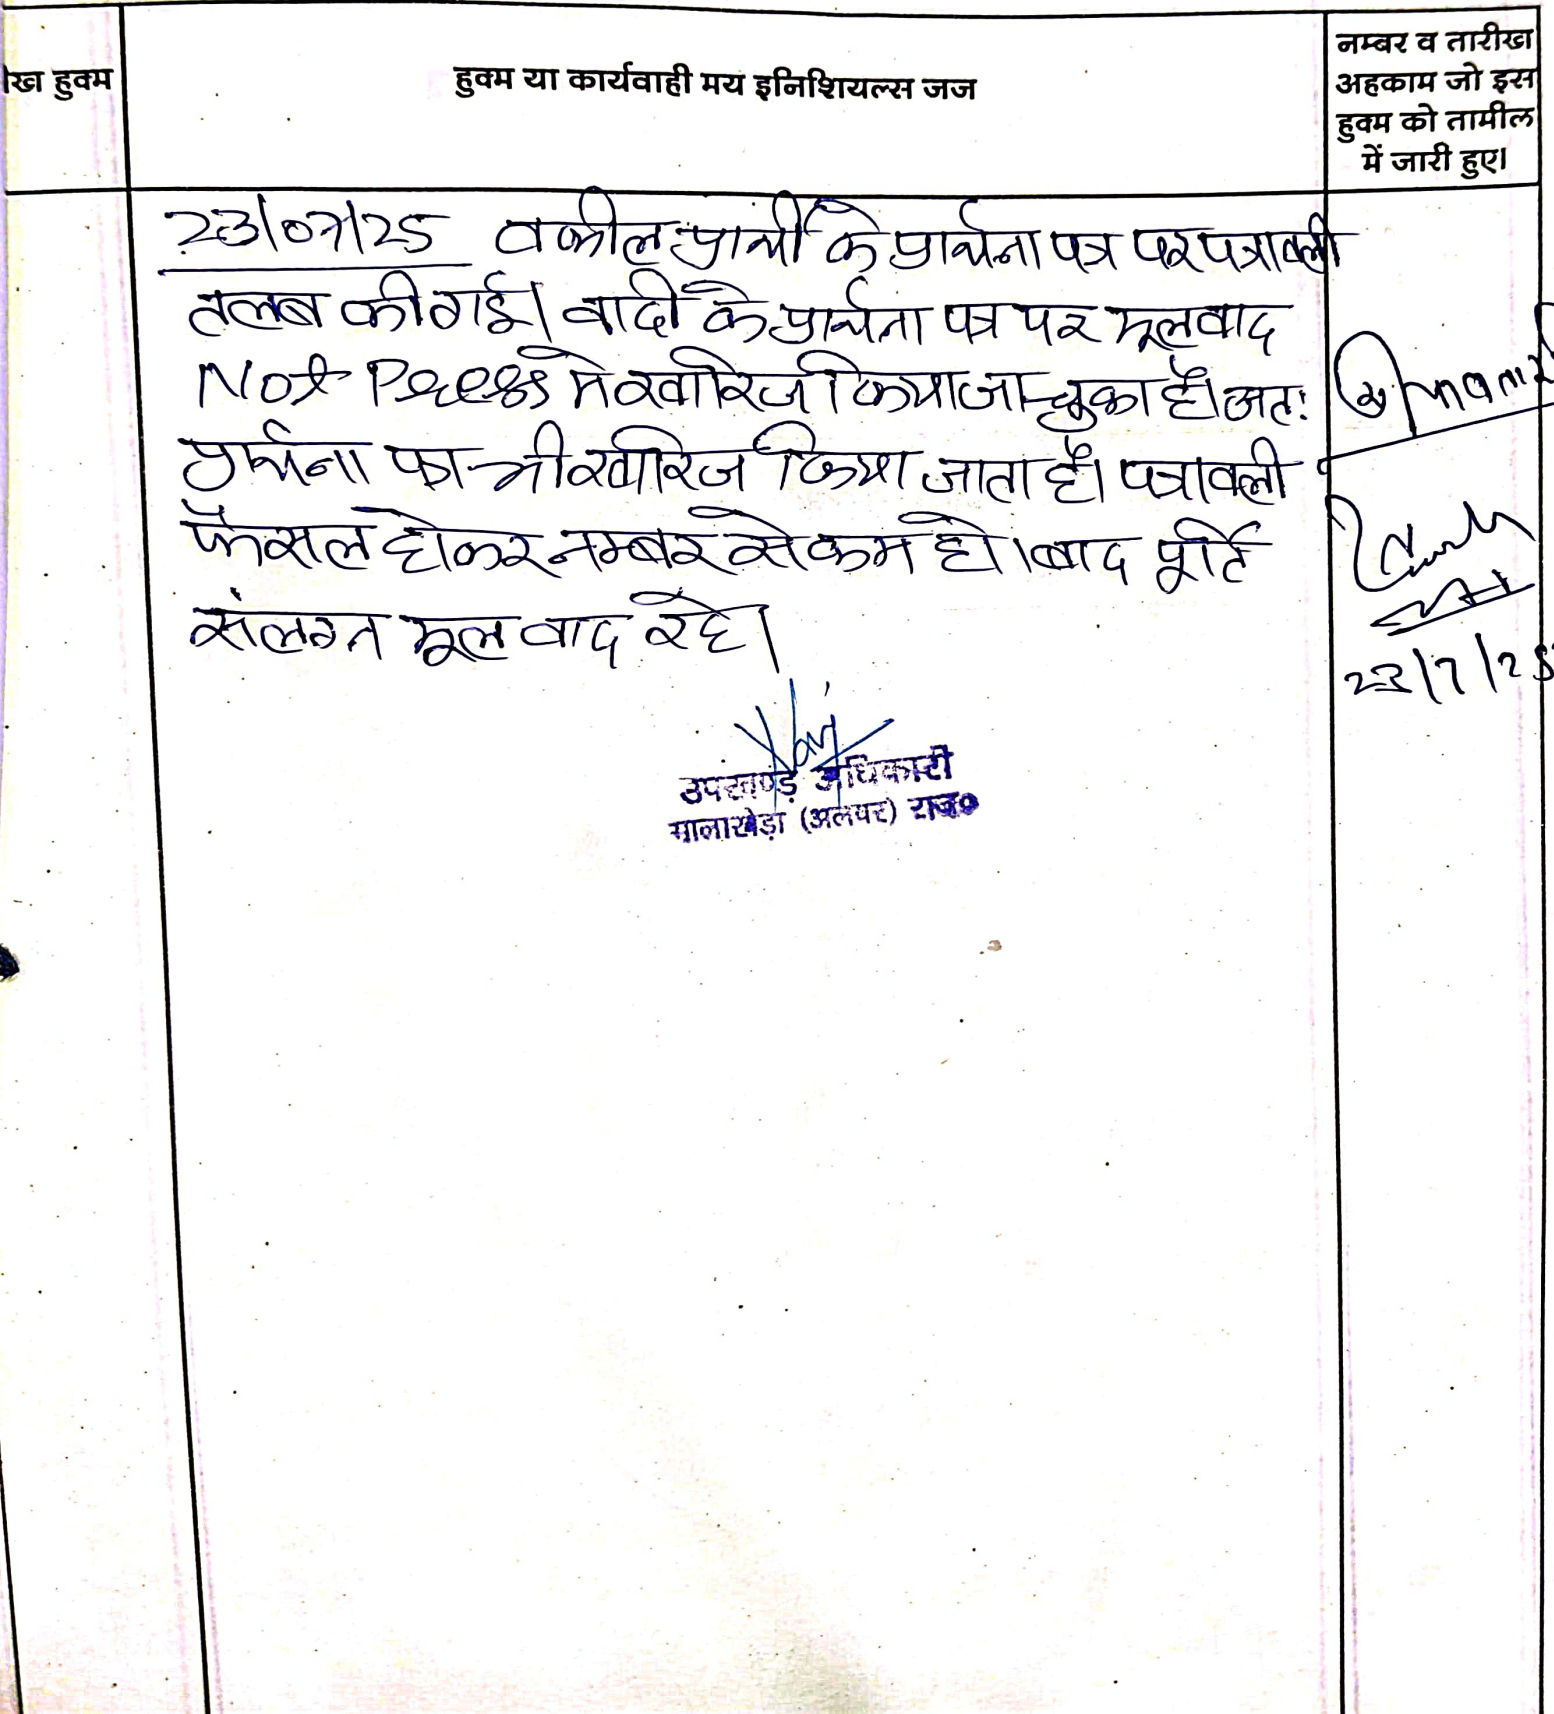 ेख हुक्म
हुक्म या कार्यवाही मय इनिशियल्स जज
नम्बर व तारीख
अहकाम जो इस
हुक्म को तामील
में जारी हुए।
23/07/25 वकील प्रार्थी के प्रार्थना पत्र पर पत्रावली
तलब की गई। वादी के प्रार्थना पत्र पर मूलवाद
Not Press मे खारिज किया जा चुका है। अतः
प्रार्थना भी खारिज किया जाता है। पत्रावली
फैसल होकर नम्बर से कम हो। बाद पूर्ति
संलग्न मूल वाद रहे।
23/7/25
उपखण्ड अधिकारी
मालाखेड़ा (अलवर) राज०